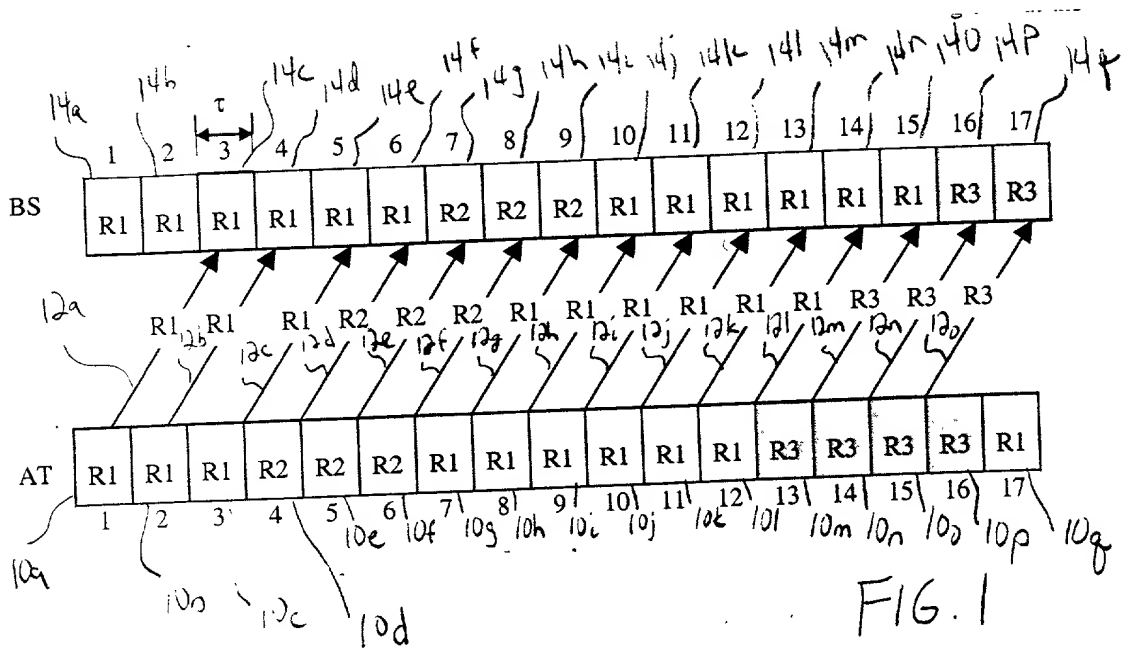 14a 14b τ 14c 14d 14e 14f 14g 14h 14i 14j 14k 14l 14m 14n 14o 14p 14q
1 2 3 4 5 6 7 8 9 10 11 12 13 14 15 16 17
BS R1 R1 R1 R1 R1 R1 R2 R2 R2 R1 R1 R1 R1 R1 R1 R3 R3
12a R1 R1 R1 R2 R2 R2 R1 R1 R1 R1 R1 R1 R3 R3 R3
12b 12c 12d 12e 12f 12g 12h 12i 12j 12k 12l 12m 12n 12o
AT R1 R1 R1 R2 R2 R2 R1 R1 R1 R1 R1 R1 R3 R3 R3 R3 R1
1 2 3 4 5 6 7 8 9 10 11 12 13 14 15 16 17
10a 10b 10c 10d 10e 10f 10g 10h 10i 10j 10k 10l 10m 10n 10o 10p 10q
FIG. 1